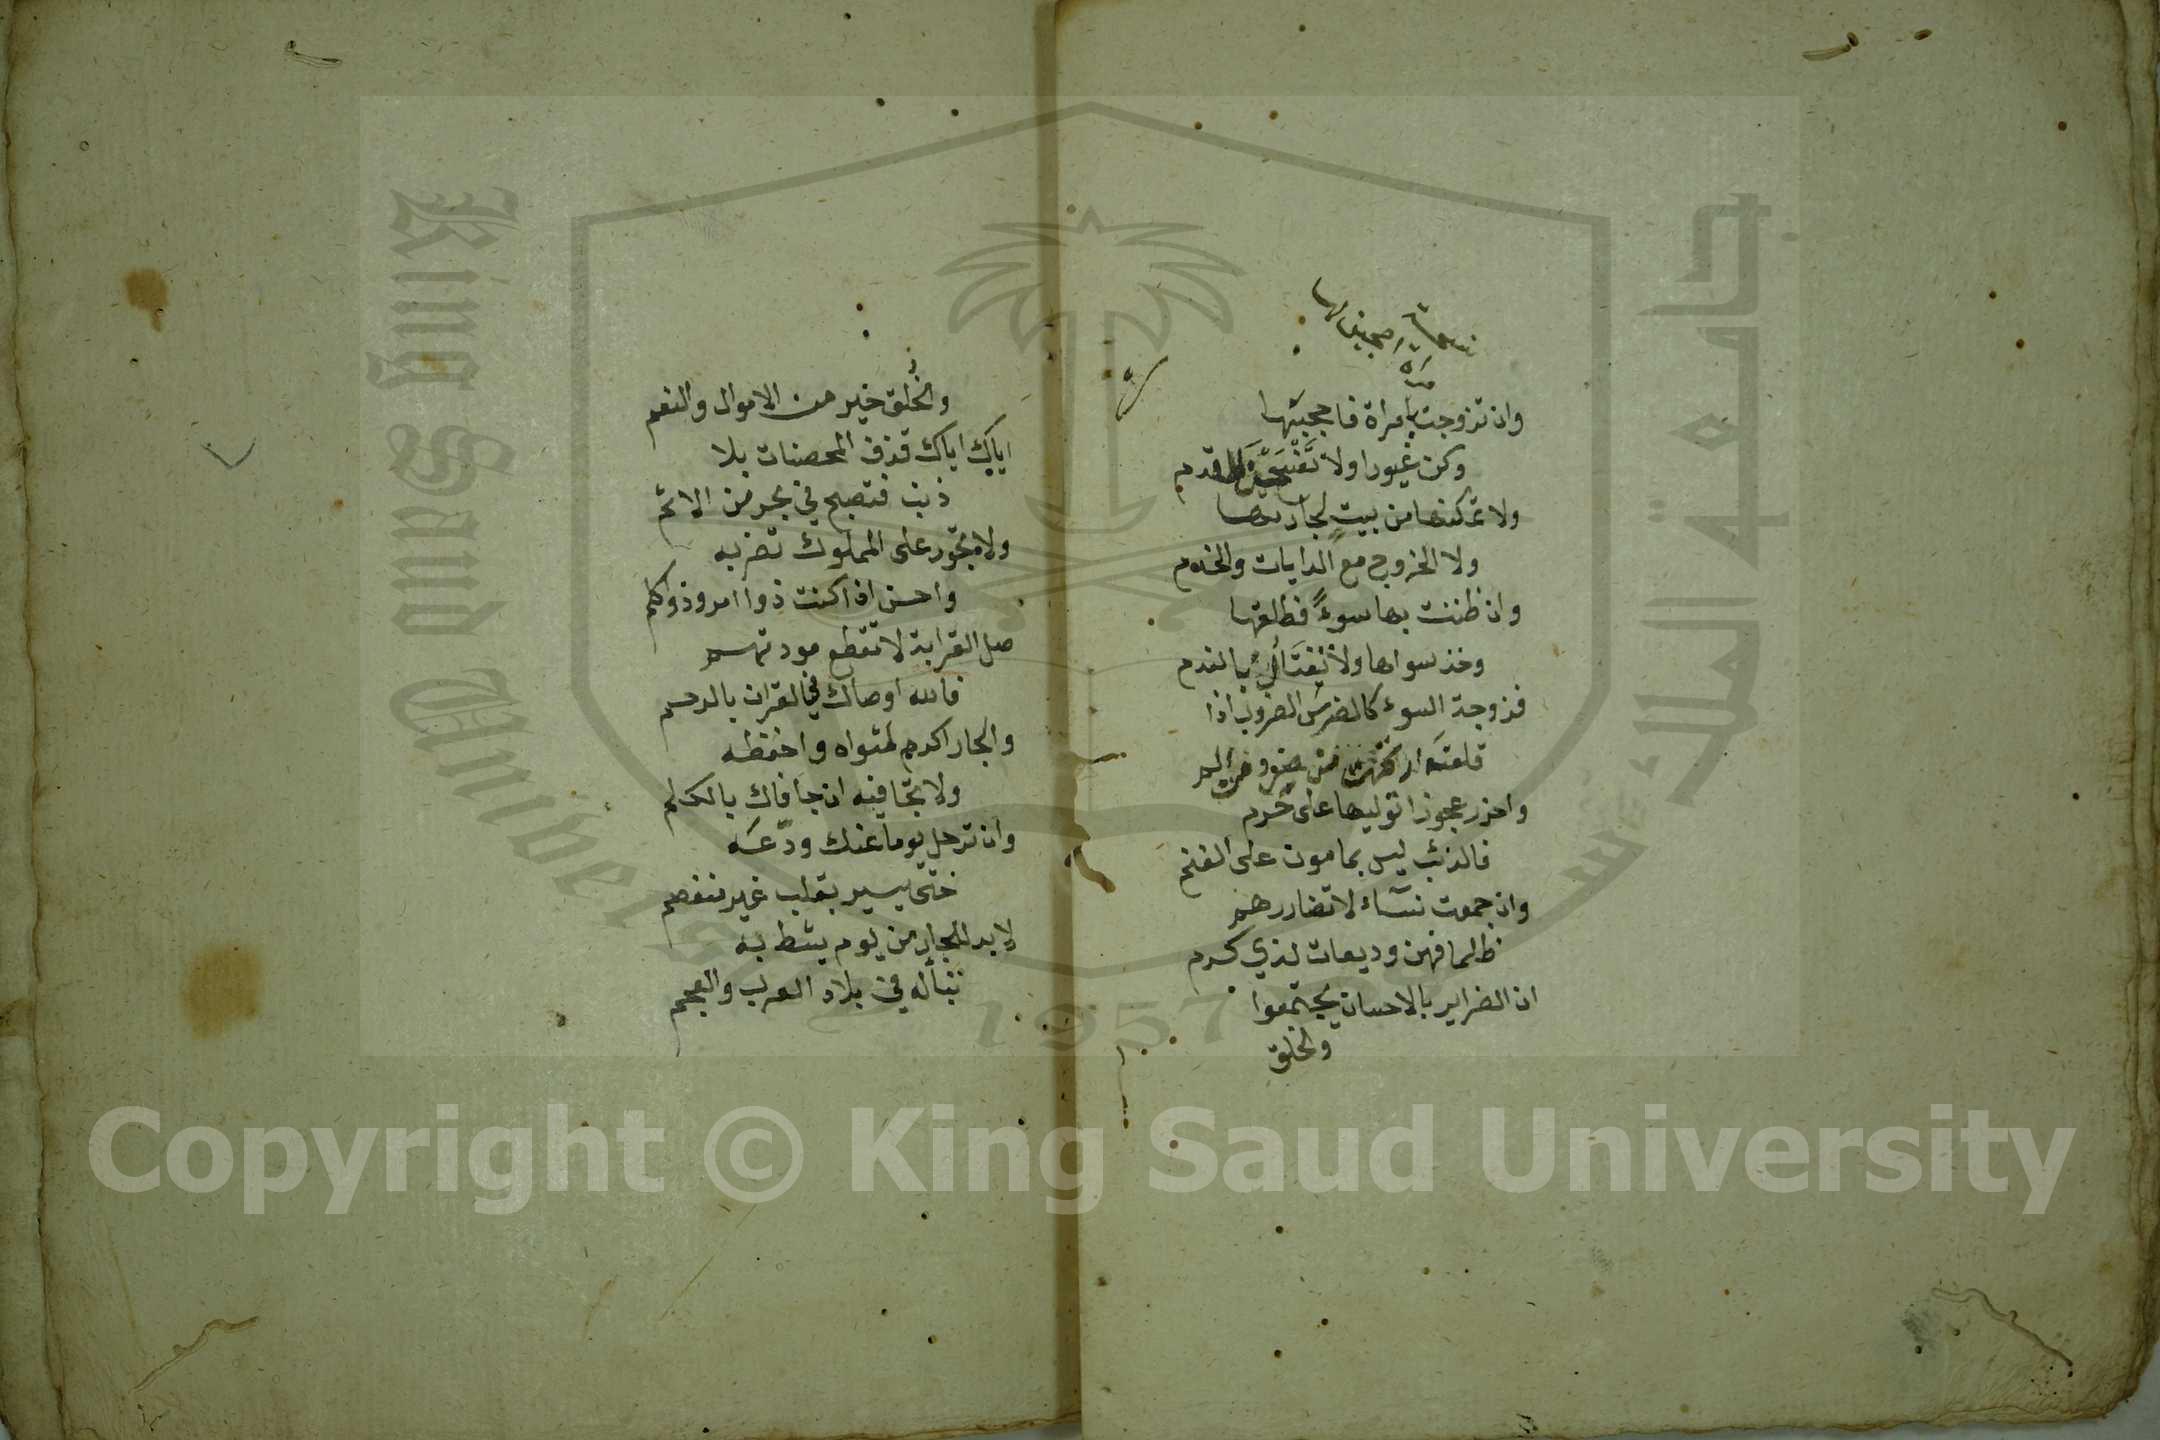 وان تزوجت بامراة فاحجبنها
وكن غيورا ولا قدم
ولا تمكنها من بيت لجارتها
ولا الخروج مع الدايات والخدم
وان ظننت بها سوءً فطلقها
وخذ سواها ولا بالندم
فزوجة السوء كالضرس الضروب اذا
قلعته
واحذر عجوزا توليها على حرم
فالذئب ليس بمامون على الغنم
وان جمعت نسآء لا تضاررهم
ظلما فهن وديعات لذي كرم
ان الضراير بالاحسان يجتمعوا
والخلق
والخُلق خير من الاموال والنعم
اياك اياك قذف المحصنات بلا
ذنب فتصبح في بحر من الاثم
ولا تجور على المملوك تضربه
واحسن اذا كنت ذوا امر وذو كلم
صل القرابة لا تقطع مودتهم
فالله اوصاك في القران بالرحم
والجار اكرم لمثواه واحفظه
ولا تجافيه ان جافاك بالكلم
وان ترحل يوما عنك ودّعه
حتى يسير بقلب غير منفصم
لا بد للجار من يوم يشط به
في بلاد العرب والعجم
King Saud University
جامعة الملك سعود
1957
Copyright © King Saud University